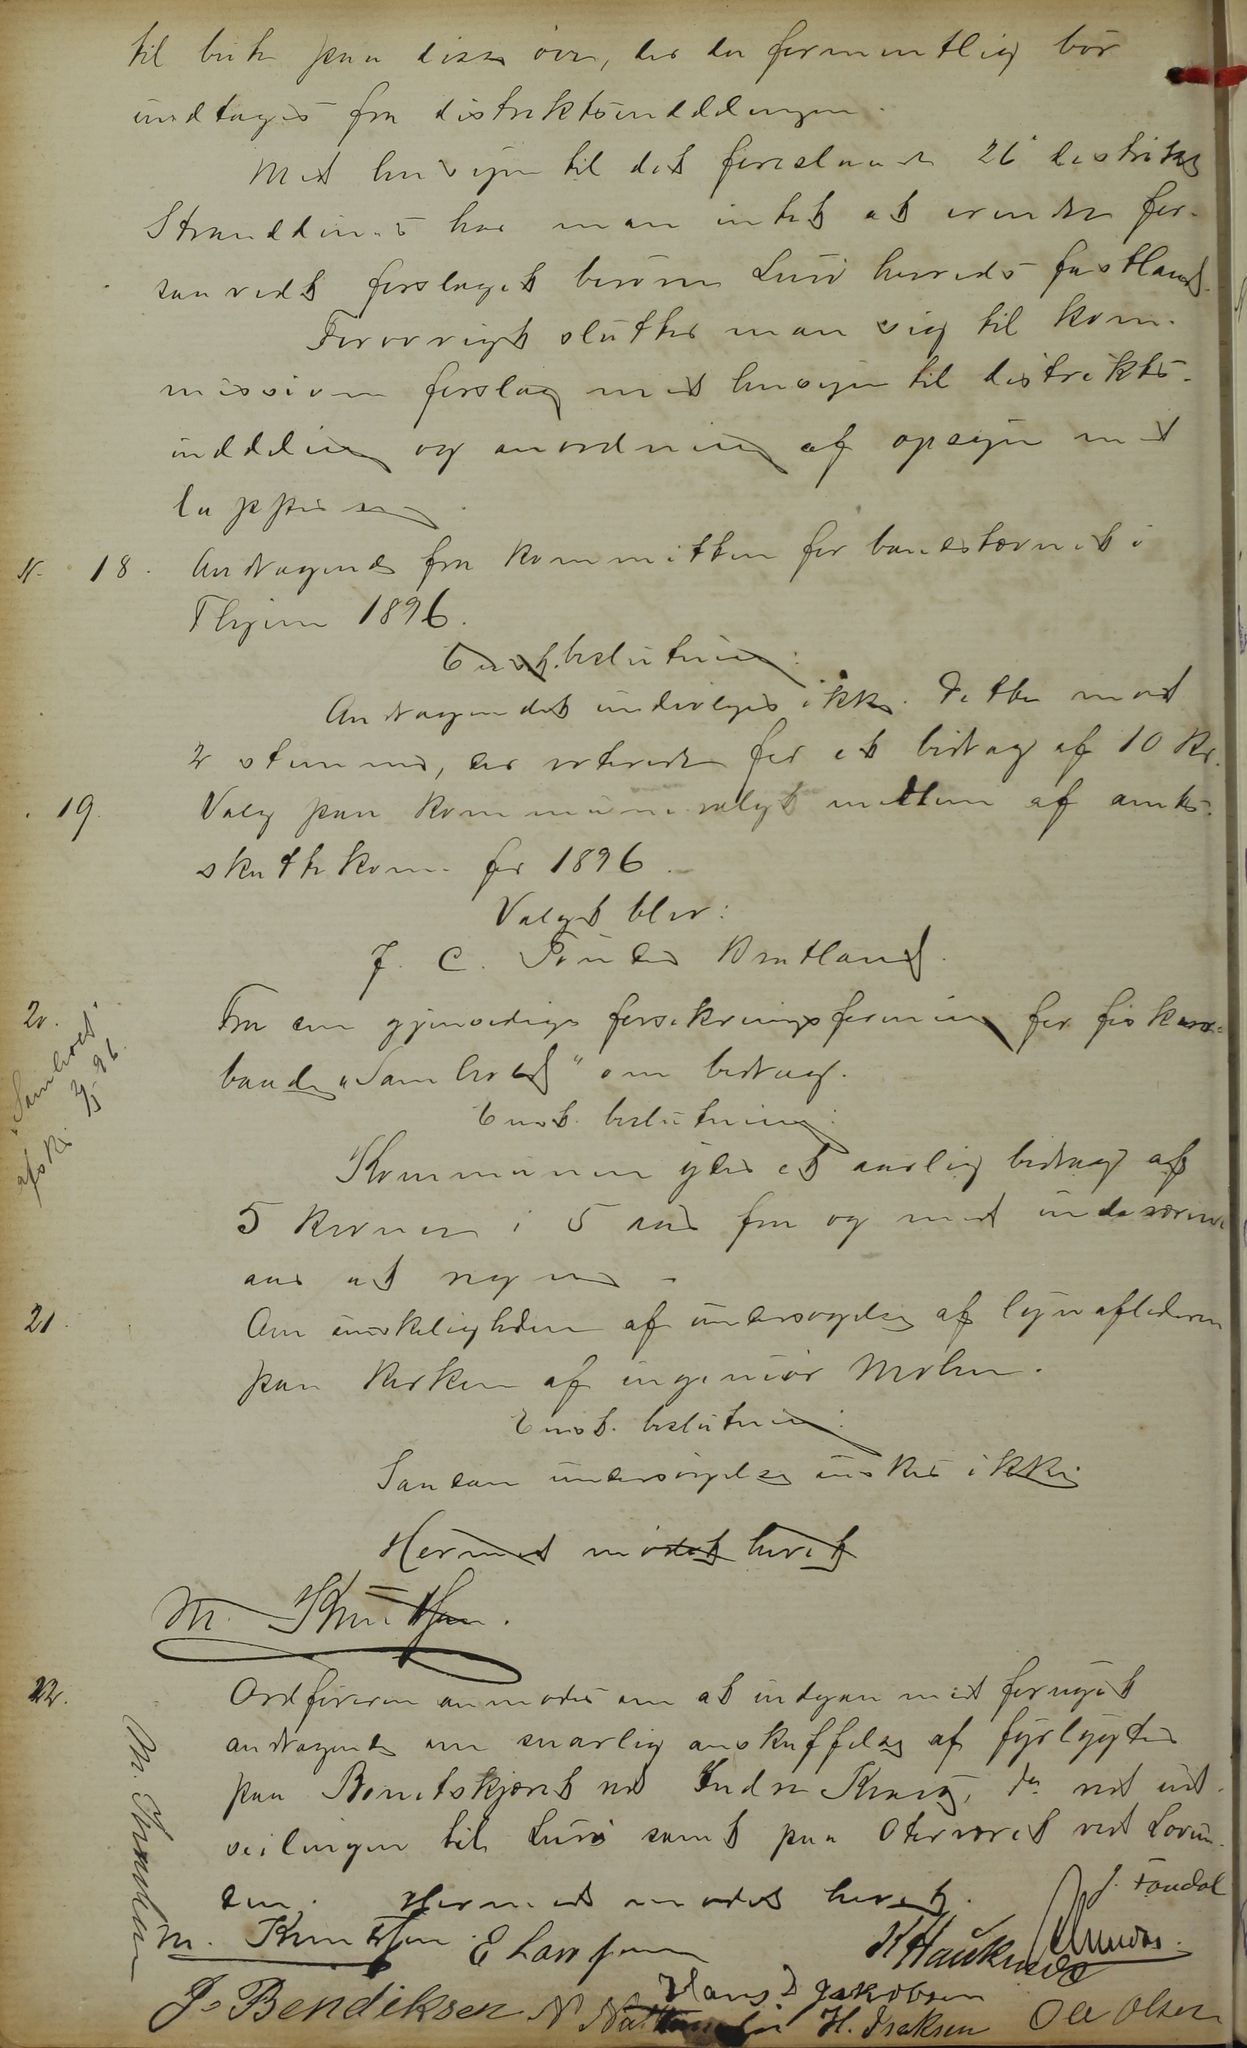 til beite paa disse öer, der da formentlig bör
undtages fra distriktsinddelingen.
Med hensyn til det foreslaaede 26 distrikt
Stranddines har man intet at erindre for-
saavidt forslaget berörer Lurö herreds fastland.
Forövrigt slutter man sig til kom-
missionens forslag med hensyn til distrikts-
inddeling og anordning af opsyn med
lapperne.
N. 18. Andragende fra kommitteen for banestævnet i
Thjem 1896.
Enst. beslutning:
Andragendet indvilges ikke. Dette mod
2 stemmer, der voterede for et bidrag af 10 kr.
19. Valg paa kommunevalgt medlem af amts-
skattekom. for 1896.
Valgt blev:
J. C. Bratland.
20. Fra den gjensidige forsikringsforening for fisker-
baade "Samhold" om bidrag.
"Samhold"
afskr. 96.
Enst. beslutning:
Kommunen yder et aarlig bidrag af
5 kroner i 5 aar fra og med indeværende
aar at regne.
21. Om önskeligheden af undersögelse af lynaflederen
paa kirken af ingeniör Mohn.
Enst. beslutning:
Saadan undersögelse önskes ikke.
Hermed mödet hævet
M. Knutsen.
22. Ordföreren anmodes om at indgaa med fornyet
andragende om snarlig anskaffelse af fyrlygter
paa Bonetskjæret ved Indre Kvarö, ved ind-
seilingen til Lurö samt paa Oterværet ved Lovun-
den. Hermed mödet hævet.
J. Tøndal
M. Knutsen E Larssen K Hauknes
J. Bendiksen Hans D Jakobsen
N H. Isaksen Ole Olsen